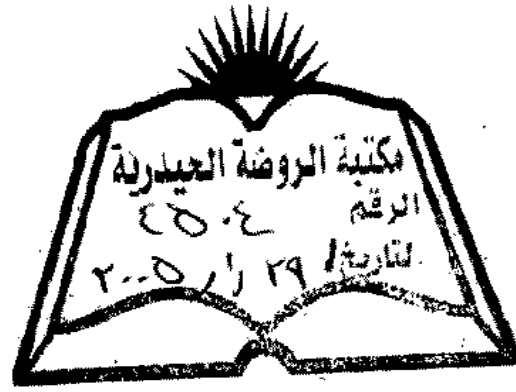 مكتبة الروضة الحيدرية
الرقم ٤٥٠٤
التاريخ ٢٩ / ١ / ٢٠٠٥